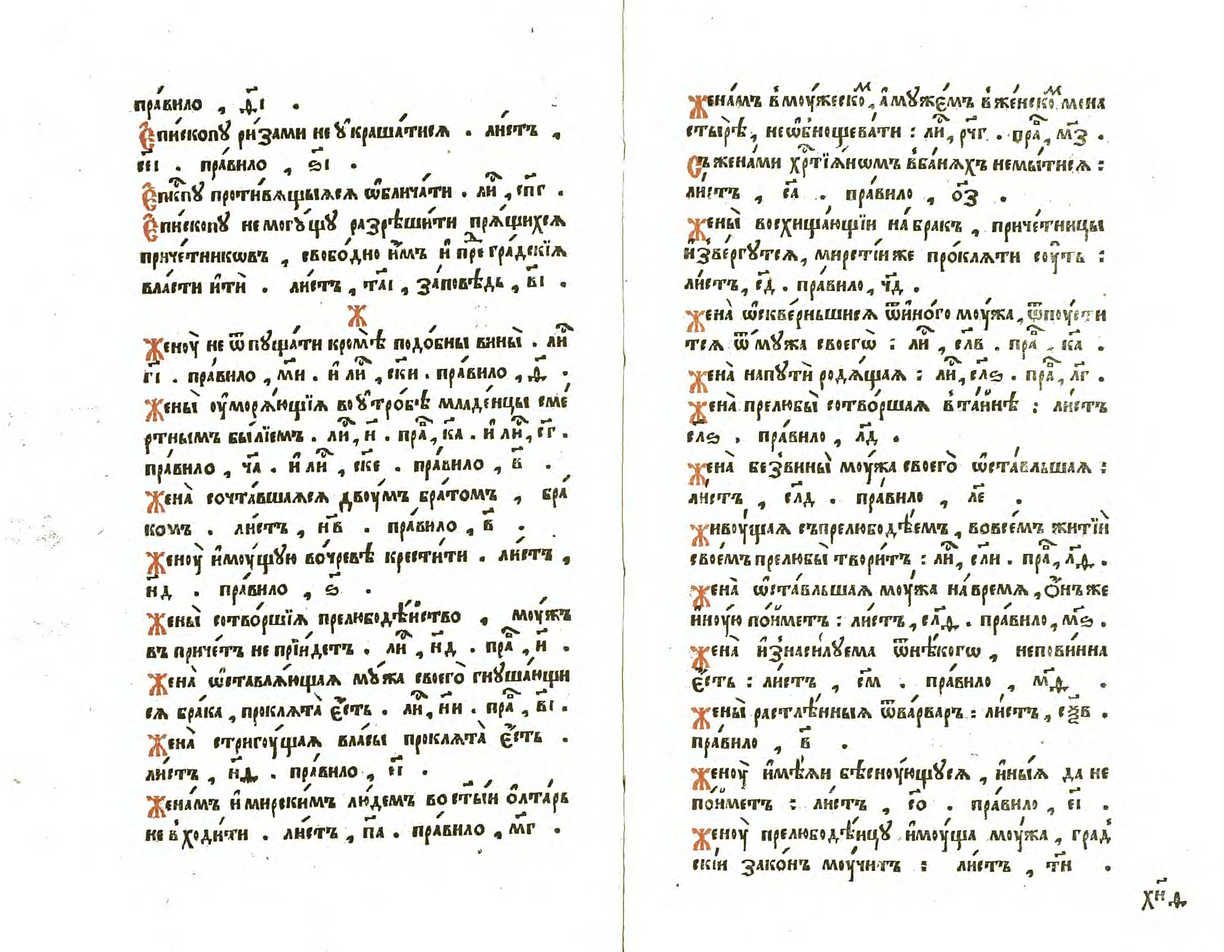 пра́вило , д҃і .
Е҆пи́скопꙋ ри́зами не ᲂу҆краша́тисѧ . ли́стъ ,
се҃і . пра́вило , ѕ҃і .
Е҆пкⷭ҇пꙋ проти́вѧщыѧсѧ ѡ҆блича́ти . лиⷭ҇ , сп҃г .
Е҆пи́скопꙋ не могꙋ́щꙋ разрѣши́ти прѧ́щихсѧ
приче́тникѡвъ , свобо́дно и҆̀мъ и҆ преⷣ гра́дскїѧ
вла́сти и҆ти́ . ли́стъ , та҃і , за́повѣдь , в҃і .
Ж
Женоу̀ не ѿпꙋща́ти кромѣ̀ подо́бны вины̀ . лиⷭ҇
г҃і . пра́вило , м҃и . и҆ лиⷭ҇ , ск҃и . пра́вило , д҃ .
Жены̀ ᲂу҆морѧ́ющїѧ во ᲂу҆тро́бѣ младе́нцы сме
ртнымъ бы́лїемъ . лиⷭ҇ , н҃ . праⷡ҇ , к҃а . и҆ лиⷭ҇ , с҃г .
пра́вило , ч҃а . и҆ лиⷭ҇ , ск҃е . пра́вило , в҃ .
Жена̀ сочта́вшаѧсѧ двоу́мъ бра́томъ , бра́
комъ . ли́стъ , н҃в . пра́вило , в҃ .
Женоу̀ и҆моу́щую во чре́вѣ крести́ти . ли́стъ ,
н҃д . пра́вило , ѕ҃ .
Жены̀ сотво́ршїѧ прелюбодѣ́йство , моу́жъ
въ приче́тъ не прїи́детъ . лиⷭ҇ , н҃д . праⷡ҇ , и҃ .
Жена̀ ѡ҆ставлѧ́ющаѧ мꙋ́жа своего̀ гнꙋша́ющи
сѧ бра́ка , проклѧта̀ є҆́сть . лиⷭ҇ , н҃и . праⷡ҇ , в҃і .
Жена̀ стригоу́щаѧ власы̀ проклѧта̀ є҆́сть .
ли́стъ , н҃д . пра́вило , е҃і .
Жена́мъ и҆ мирски́мъ лю́демъ во ст҃ы́и о҆лта́рь
не входи́ти . ли́стъ , п҃а . пра́вило , м҃г .
Жена́мъ в моу́жескоⷨ , а҆ мꙋже́мъ в же́нскоⷨ мона
стырѣ̀ , не ѡ҆бнощева́ти : лиⷭ҇ , рч҃г . праⷡ҇ , м҃з .
Съ жена́ми хрⷭ҇тїѧ́нѡмъ в ба́нѧхъ не мы́тисѧ :
ли́стъ , с҃а . пра́вило , о҃з .
Жены̀ восхища́ющїи на бра́къ , приче́тницы
и҆зве́ргꙋтсѧ , мирсті́и же про́клѧти соу́ть :
ли́стъ , с҃д . пра́вило , ч҃д .
Жена̀ ѡ҆скве́рньшиесѧ ѿ и҆но́го моу́жа , ѿпоу́сти
тсѧ ѿ мꙋ́жа своегѡ̀ : лиⷭ҇ , сл҃в . праⷡ҇ , к҃а .
Жена̀ на пꙋтѝ родѧ́щаѧ : лиⷭ҇ , сл҃ѕ . праⷡ҇ , л҃г .
Жена̀ прелюбы̀ сотво́ршаѧ в та́йнѣ : ли́стъ
сл҃ѕ . пра́вило , л҃д .
Жена̀ без вины̀ моу́жа своего̀ ѡ҆ста́вльшаѧ :
ли́стъ , сл҃д . пра́вило , л҃е .
Живоу́щаѧ съ прелюбодѣ́емъ , во все́мъ житїѝ
свое́мъ прелюбы̀ твори́тъ : лиⷭ҇ , сл҃и . праⷡ҇ , л҃д .
Жена̀ ѡ҆ста́вльшаѧ моу́жа на вре́мѧ , о҆́нъ же
и҆ноу́ю по́йметъ : ли́стъ , сл҃д . пра́вило , м҃ѕ .
Жена̀ и҆знаси́лꙋема ѿ нѣ́когѡ , непови́нна
є҆́сть : ли́стъ , с҃м . пра́вило , м҃д .
Жены̀ растлѣ́нныѧ ѿ ва́рваръ : ли́стъ , сѯ҃в .
пра́вило , в҃ .
Женоу̀ и҆мѣ́ѧи бѣсноу́ющꙋсѧ , и҆ны́ѧ да не
по́йметъ : ли́стъ , с҃о . пра́вило , е҃і .
Женоу̀ прелюбодѣ́ицꙋ и҆моу́ща моу́жа , град
скі́и зако́нъ моу́читъ : ли́стъ , т҃и .
хн҃д